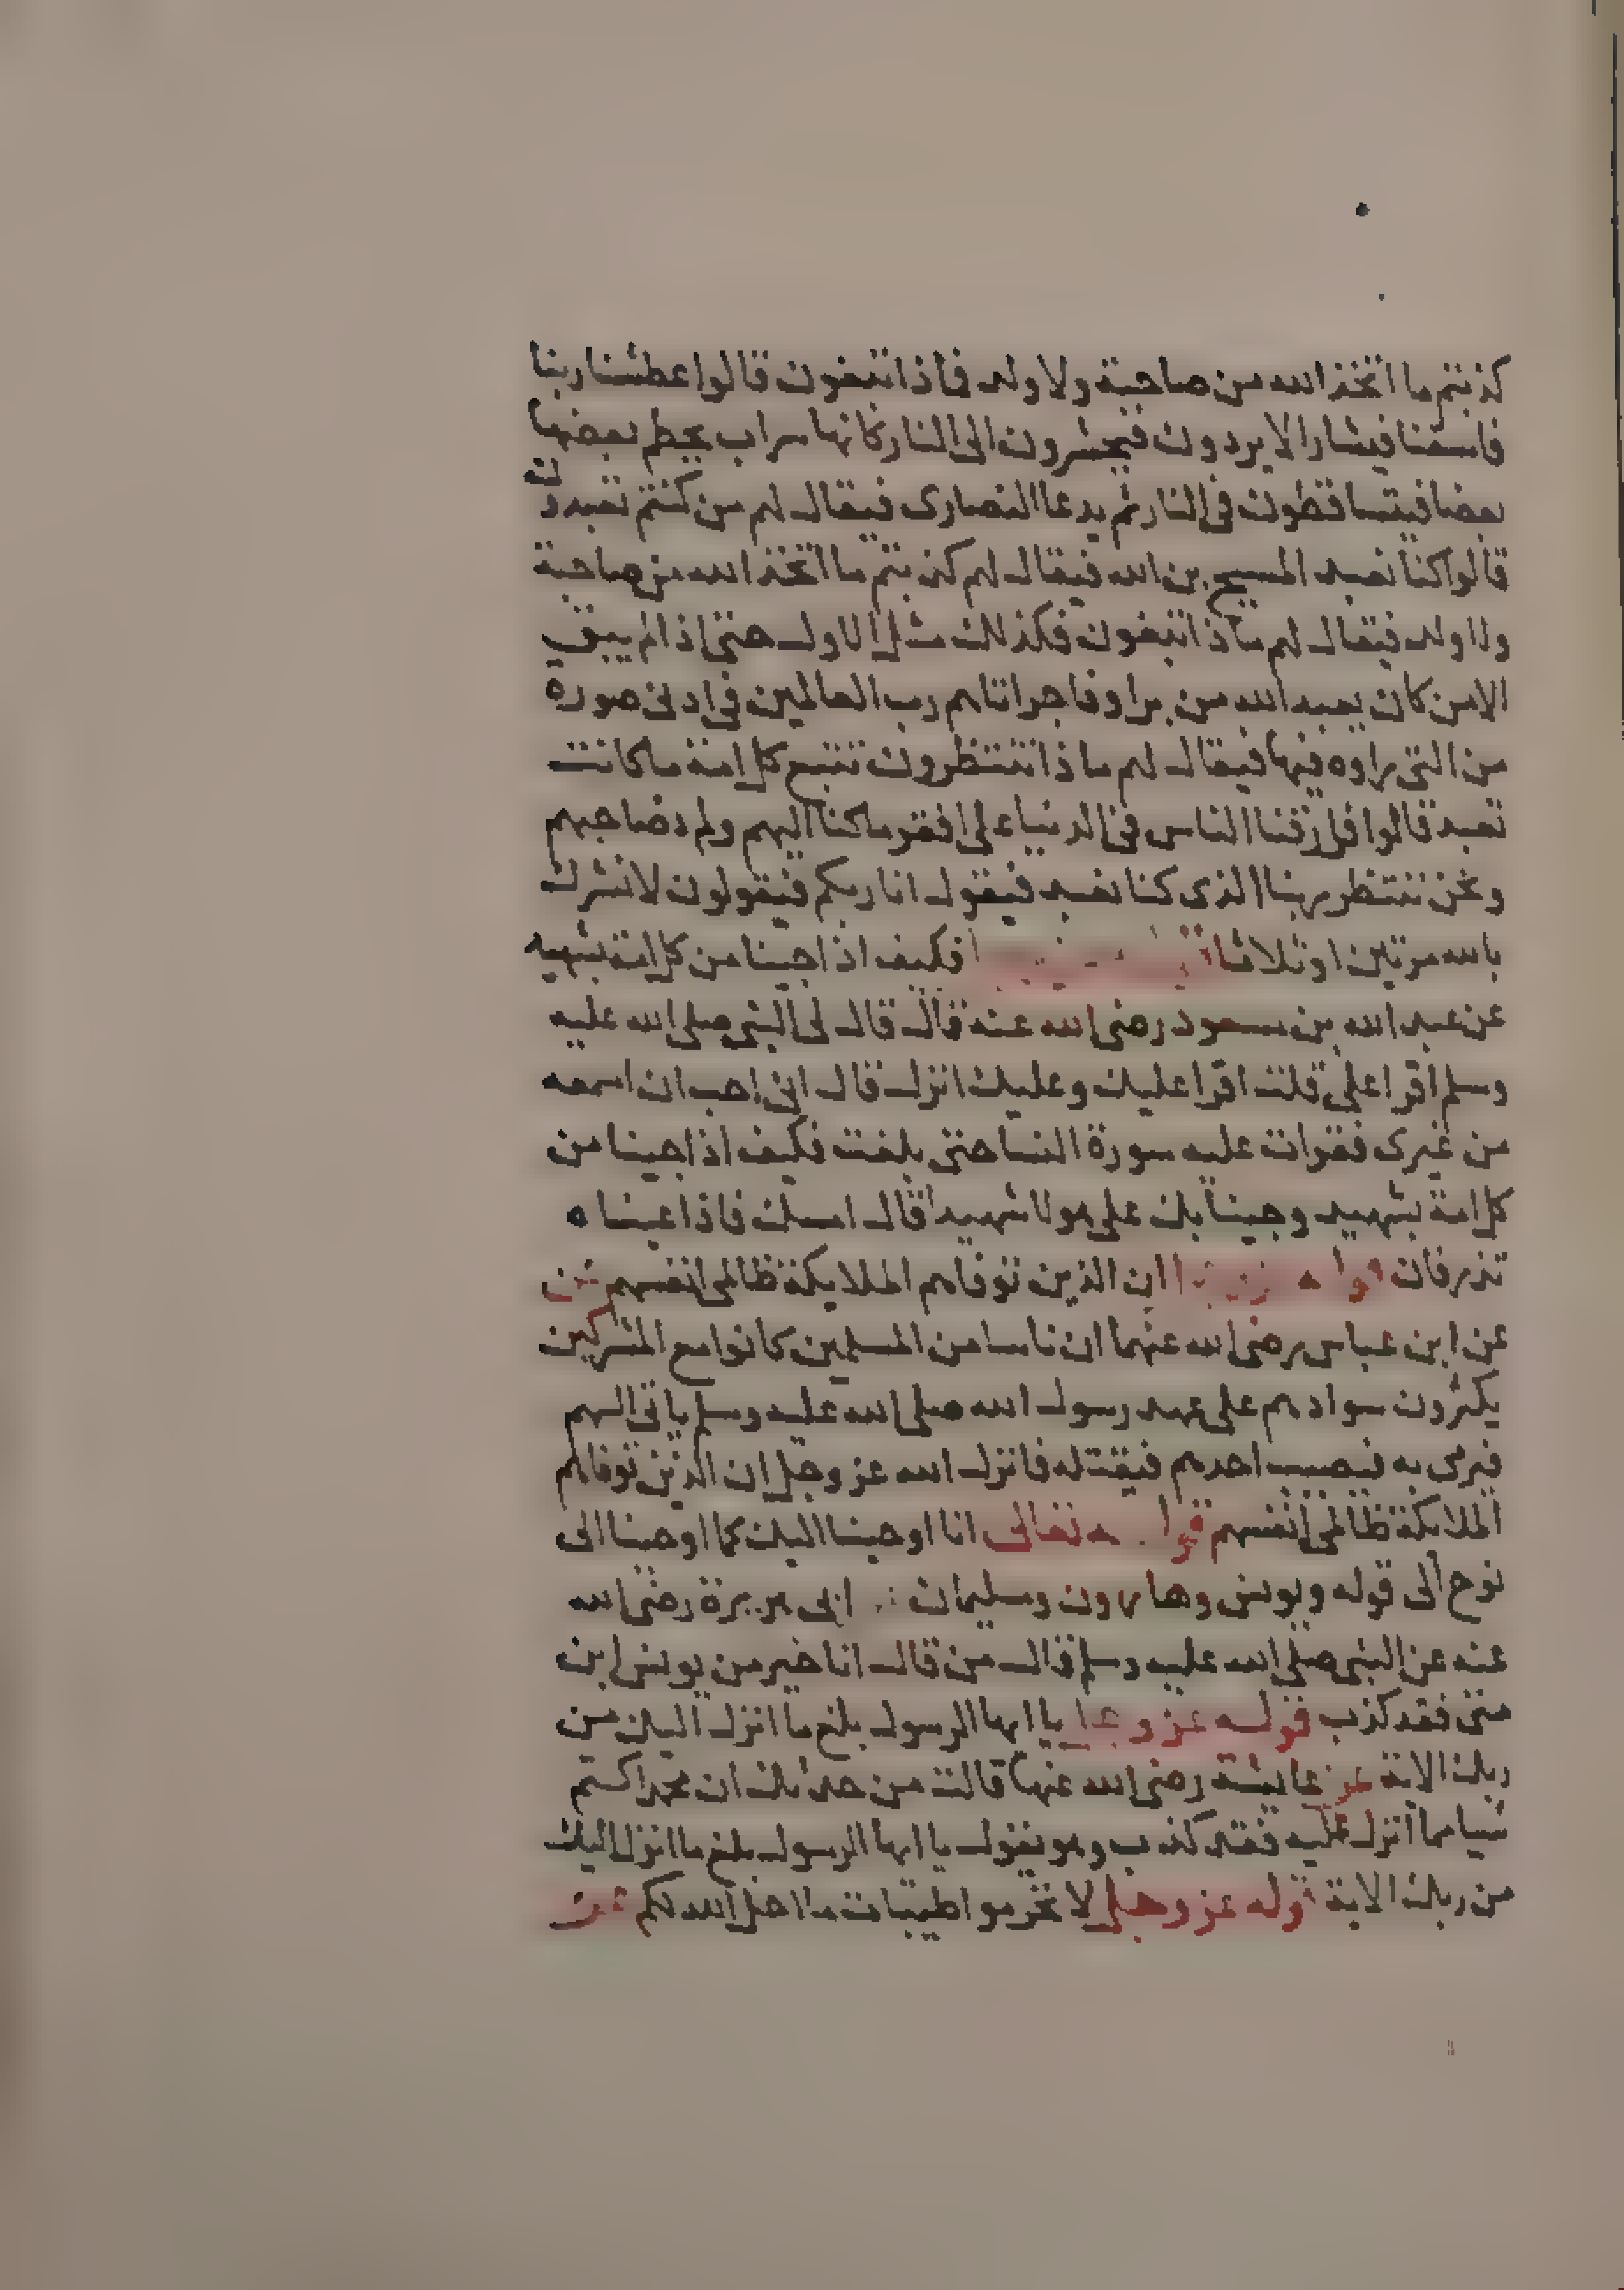 كذبتم ما اتخذ الله من صاحبة ولا ولد فاذا تبغون قالوا عطشنا ربنا
فاسقنا فيشار الا يردون فيحشرون الى النار كانها سراب يحطم بعضها
بعضا فيتساقطون في النار ثم يدعا النصارى فيقال لهم من كنتم تعبدون
قالوا كنا نعبد المسيح بن الله فيقال لهم كذبتم ما اتخذ الله من صاحبة
ولا ولد فيقال لهم ماذا تبغون فكذلك مثل الاول حتى اذا لم يبق
الا من كان يعبد الله من بر او فاجر اتاهم رب العالمين في ادنى صوره
من التي راوه فيها فيقال لهم ماذا تنتظرون تتبع كل امة ما كانت
تعبد قالوا فارقنا الناس في الدنيا على افقر ما كنا اليهم ولم نصاحبهم
ونحن ننتظر ربنا الذى كنا نعبد فيقول انا ربكم فيقولون لا نشرك
بالله مرتين او ثلاثا فكيف اذا جينا من كل امة بشهيد
عن عبد الله بن مسعود رضى الله عنه قال قال لى النبى صلى الله عليه
وسلم اقرا على قلت اقرا عليك وعليك انزل قال انى احب ان اسمعه
من غيرى فقرات عليه سورة النسا حتى بلغت فكيف اذا جينا من
كل امة بشهيد وجينا بك على هولا شهيدا قال امسك فاذا عيناه
تذرفان ان الذين توفاهم الملايكة ظالمى انفسهم
عن ابن عباس رضى الله عنهما ان ناسا من المسلمين كانوا مع المشركين
يكثرون سوادهم على عهد رسول الله صلى الله عليه وسلم ياتى السهم
فيرمى به فيصيب احدهم فيقتله فانزل الله عز وجل ان الذين توفاهم
الملايكة ظالمى انفسهم قوله تعالى انا اوحينا اليك كما اوحينا الى
نوح الى قوله ويونس وهارون وسليمان ابى هريرة رضى الله
عنه عن النبى صلى الله عليه وسلم قال من قال انا خير من يونس ابن
متى فقد كذب قوله عز وجل يا ايها الرسول بلغ ما انزل اليك من
ربك الاية عن عايشة رضى الله عنها قالت من حدثك ان محمدا كتم
شيا مما انزل عليه فقد كذب وهو يقول يا ايها الرسول بلغ ما انزل اليك
من ربك الاية قوله عز وجل لا تحرموا طيبات ما احل الله لكم عن